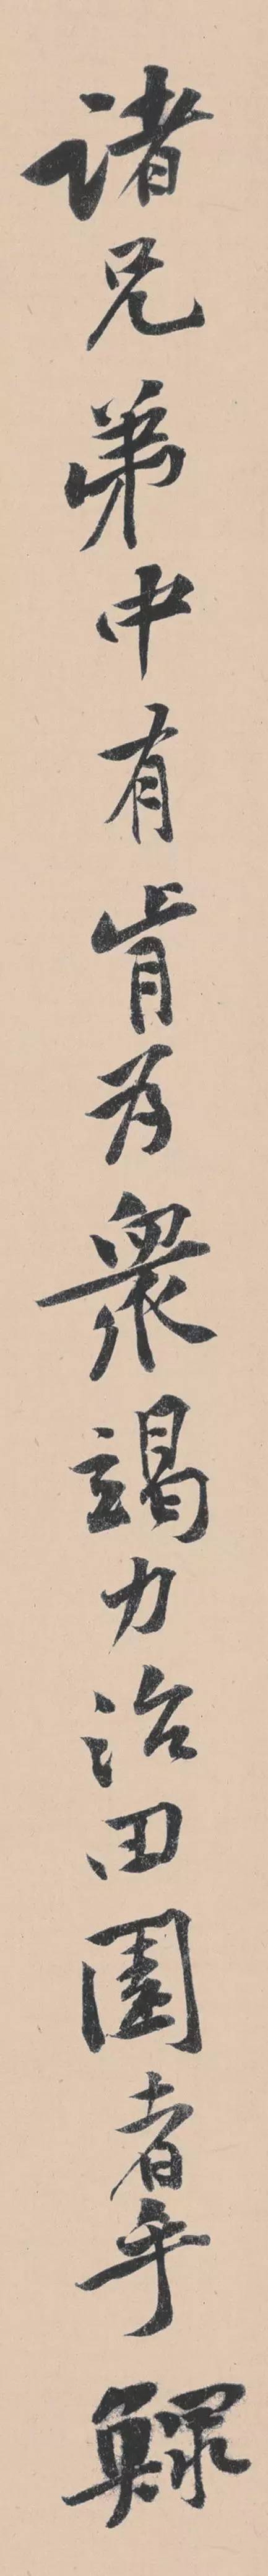 諸兄弟中有肯为衆竭力治田園者乎鰥